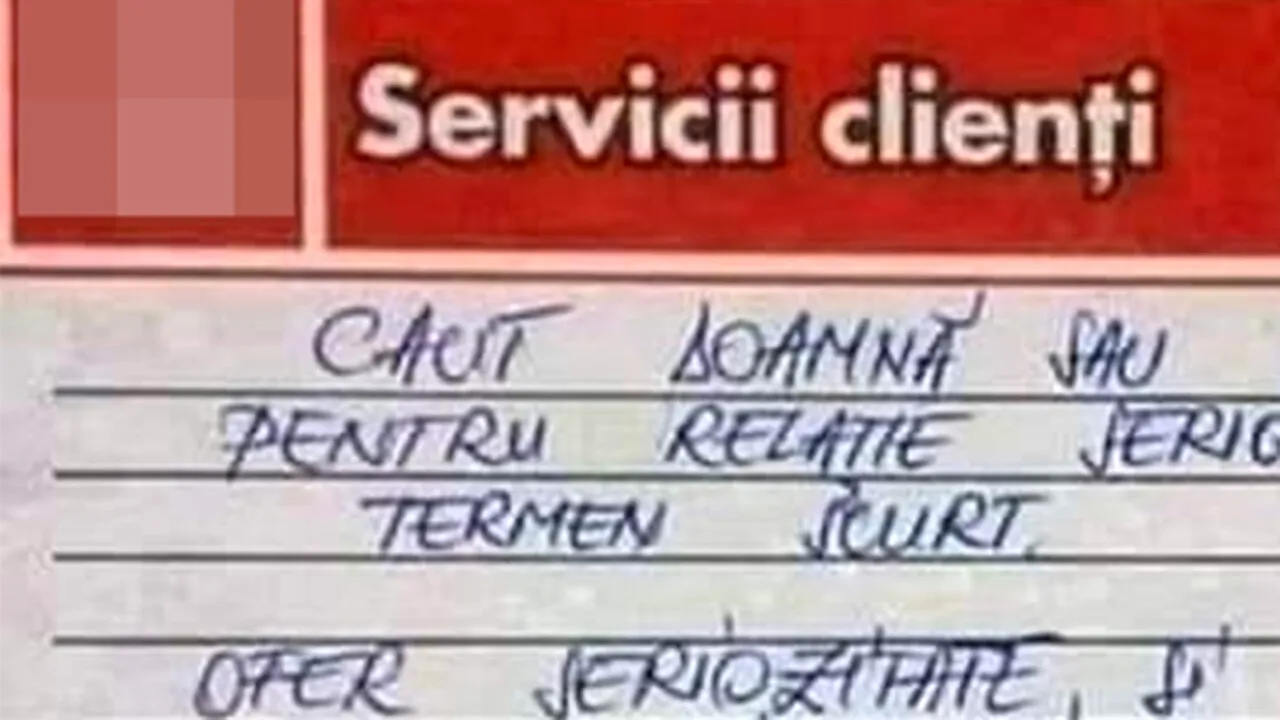 Servicii clienți
CAUT DOAMNĂ SAU
PENTRU RELAȚIE
TERMEN SCURT.
OFER SERIOZITATE, ȘI